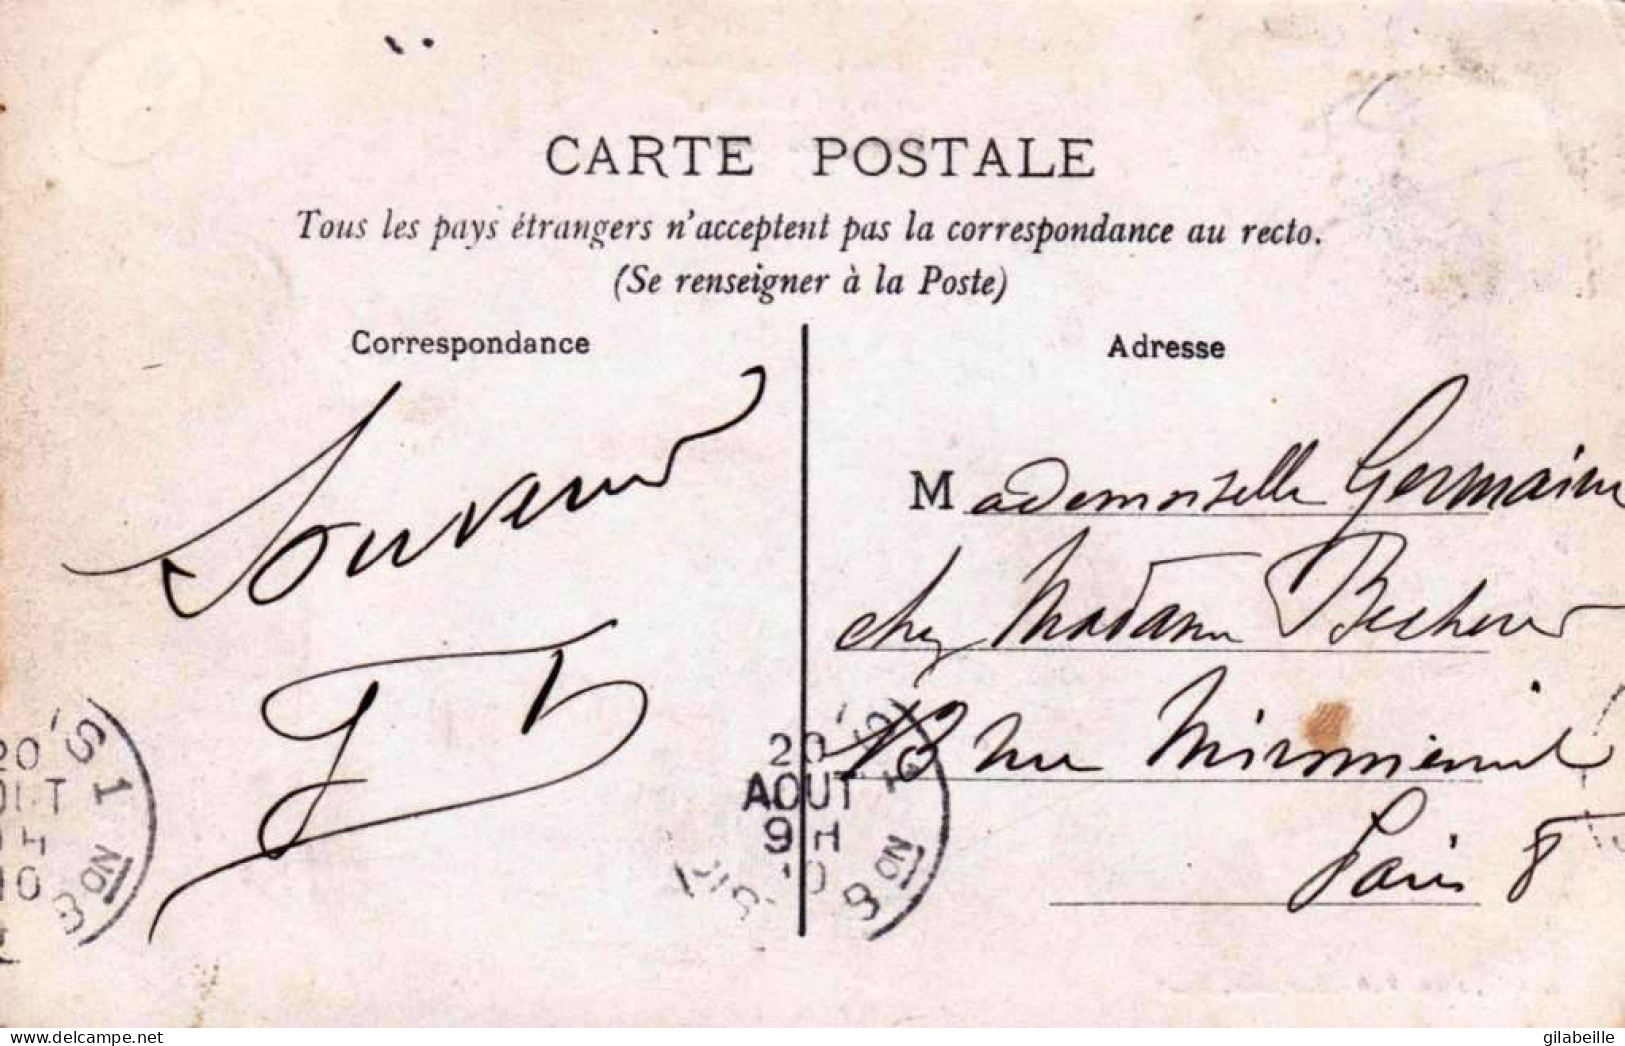 CARTE POSTALE
Tous les pays étrangers n'acceptent pas la correspondance au recto.
(Se renseigner à la Poste)
Correspondance
Souvenir
Adresse
Mademoiselle Germaine
chez Madame
13 rue Miromenil
Paris 8
20
AOUT
9 H
10
20
AOUT
9 H
10
www.delcampe.net
gilabeille